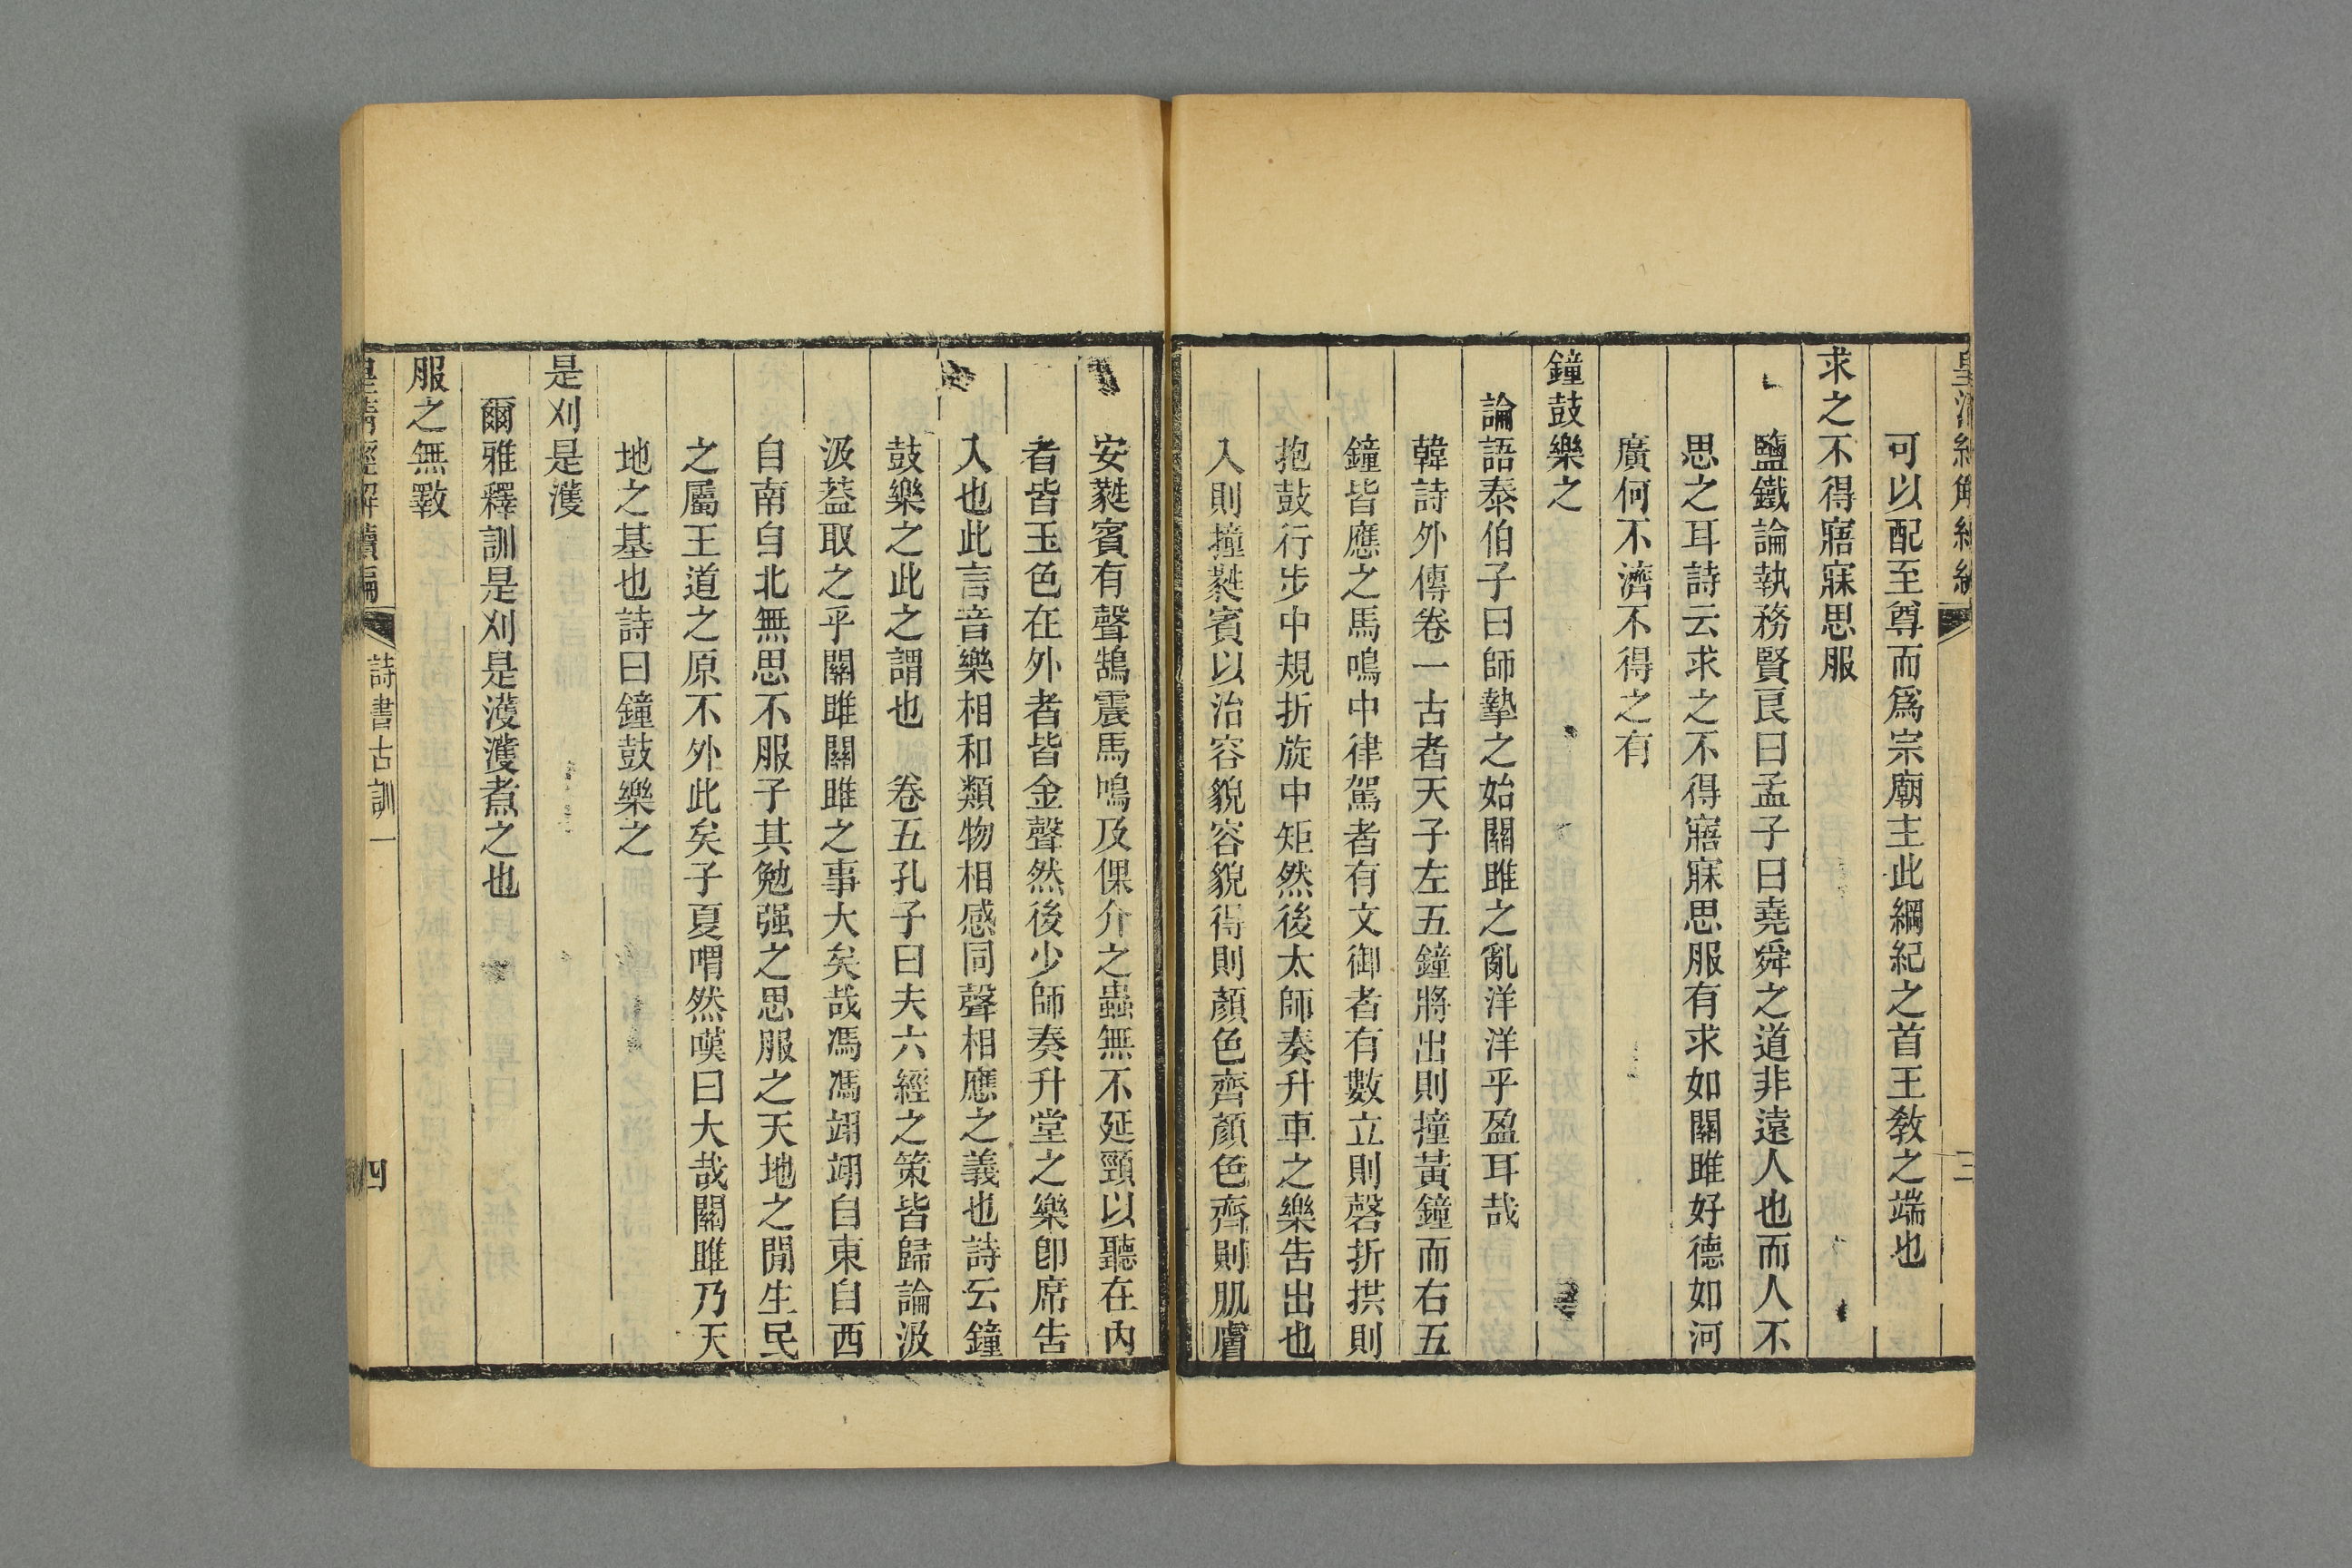 可以配至尊而爲宗廟主此綱紀之首王敎之端也
求之不得寤寐思服
鹽鐵論執務賢良曰孟子曰堯舜之道非遠人也而人不
思之耳詩云求之不得寤寐思服有求如關雎好德如河
廣何不濟不得之有
鐘鼓樂之
論語泰伯子曰師摯之始關雎之亂洋洋乎盈耳哉
韓詩外傳卷一古者天子左五鐘將出則撞黃鐘而右五
鐘皆應之馬鳴中律駕者有文御者有數立則磬折拱則
抱鼓行步中規折旋中矩然後太師奏升車之樂告出也
入則撞蕤賓以治容貌容貌得則顏色齊顏色齊則肌膚
安蕤賓有聲鵠震馬鳴及倮介之蟲無不延頸以聽在內
者皆玉色在外者皆金聲然後少師奏升堂之樂卽席告
入也此言音樂相和類物相感同聲相應之義也詩云鐘
鼓樂之此之謂也　卷五孔子曰夫六經之策皆歸論汲
汲葢取之乎關雎關雎之事大矣哉馮馮翊翊自東自西
自南自北無思不服子其勉强之思服之天地之閒生民
之屬王道之原不外此矣子夏喟然嘆曰大哉關雎乃天
地之基也詩曰鐘鼓樂之
是刈是濩
爾雅釋訓是刈是濩濩煮之也
服之無斁
皇清經解續編
詩書古訓一
四